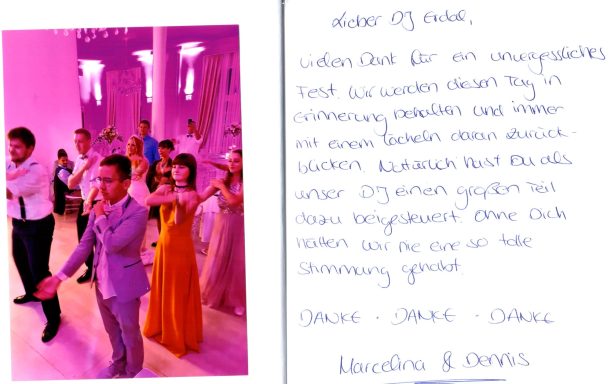 Lieber DJ Erdal,
vielen Dank für ein unvergessliches
Fest. Wir werden diesen Tag in
Erinnerung behalten und immer
mit einem Lächeln daran zurück-
blicken. Natürlich hast Du als
unser DJ einen großen Teil
dazu beigesteuert. Ohne Dich
hätten wir nie eine so tolle
Stimmung gehabt.
DANKE · DANKE · DANKE
Marcelina & Dennis